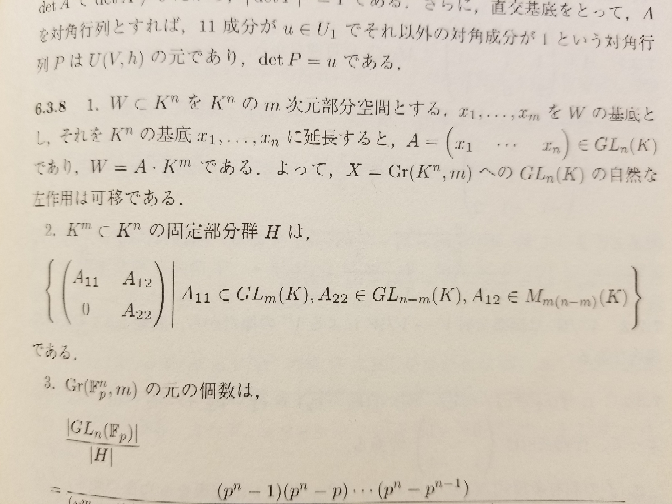 さらに, 直交基底をとって, A
を対角行列とすれば, 11 成分が u ∈ U₁ でそれ以外の対角成分が 1 という対角行
列 P は U(V, h) の元であり, det P = u である.
6.3.8 1. W ⊂ Kⁿ を Kⁿ の m 次元部分空間とする. x₁, ..., xₘ を W の基底と
し, それを Kⁿ の基底 x₁, ..., xₙ に延長すると, A = (x₁ ⋯ xₙ) ∈ GLₙ(K)
であり, W = A · Kᵐ である. よって, X = Gr(Kⁿ, m) への GLₙ(K) の自然な
左作用は可移である.
2. Kᵐ ⊂ Kⁿ の固定部分群 H は,
{ ( A₁₁ A₁₂
0 A₂₂ ) | A₁₁ ∈ GLₘ(K), A₂₂ ∈ GLₙ₋ₘ(K), A₁₂ ∈ Mₘ₍ₙ₋ₘ₎(K) }
である.
3. Gr(𝔽ₚⁿ, m) の元の個数は,
|GLₙ(𝔽ₚ)|
|H|
= (pⁿ − 1)(pⁿ − p) ⋯ (pⁿ − pⁿ⁻¹)